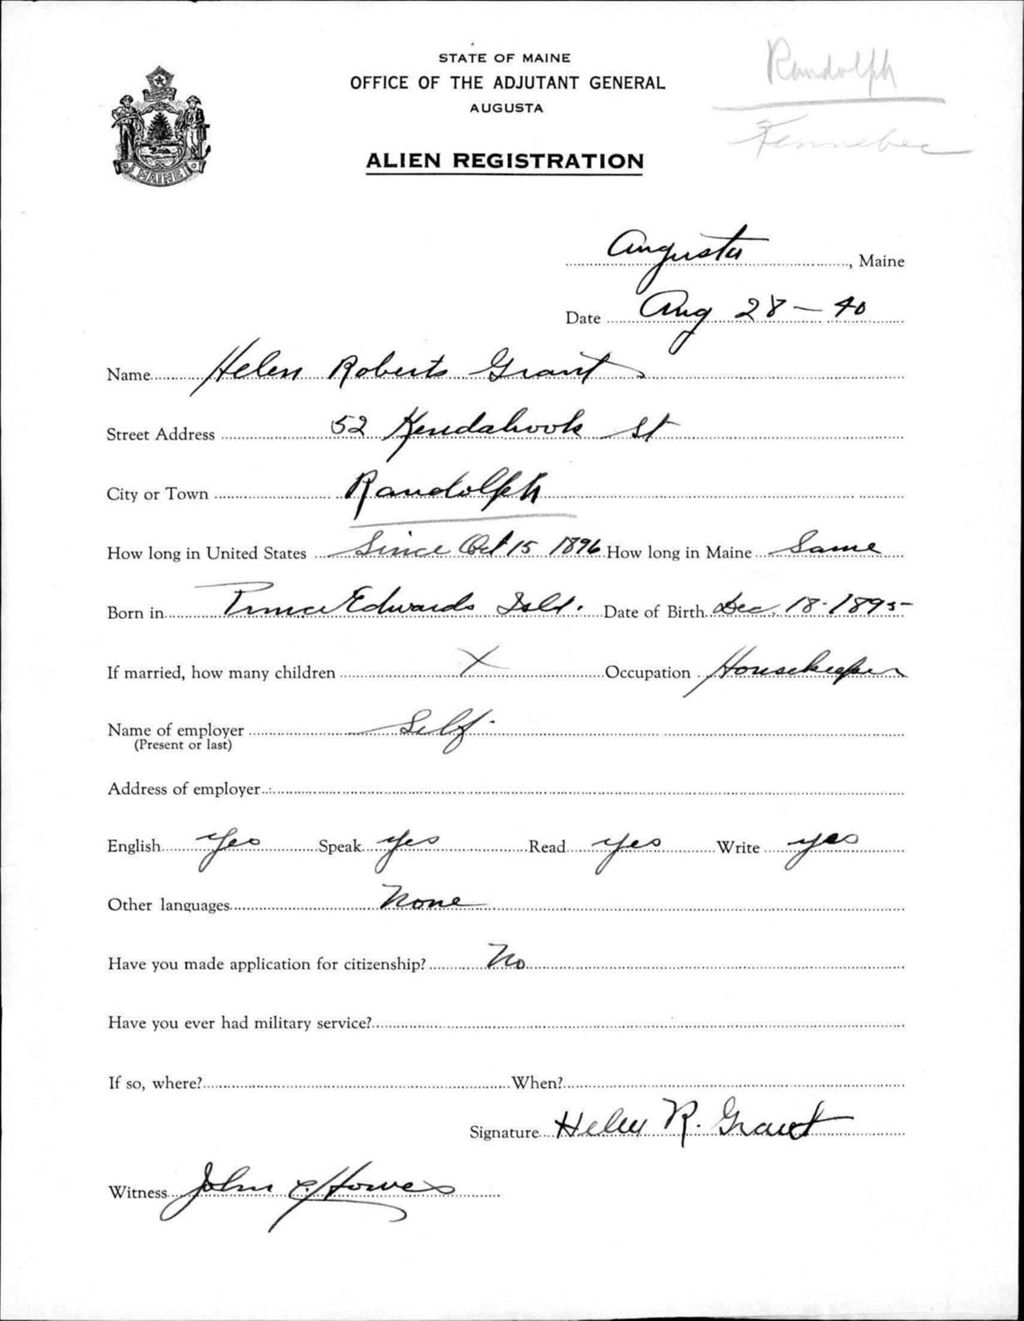 STATE OF MAINE
OFFICE OF THE ADJUTANT GENERAL
AUGUSTA
ALIEN REGISTRATION
Randolph
Kennebec
MAINE
Augusta, Maine
Date Aug 28-40
Name Helen Roberts Grant
Street Address 52 Kendahook St
City or Town Randolph
How long in United States Since Oct 15 1896 How long in Maine Same
Born in Prince Edwards Isld. Date of Birth Dec. 18-1895
If married, how many children X Occupation Housekeeper
Name of employer Self.
(Present or last)
Address of employer
English Yes Speak yes Read yes Write yes
Other languages None
Have you made application for citizenship? No
Have you ever had military service?
If so, where? When?
Signature Helen R. Grant
Witness John C Howes